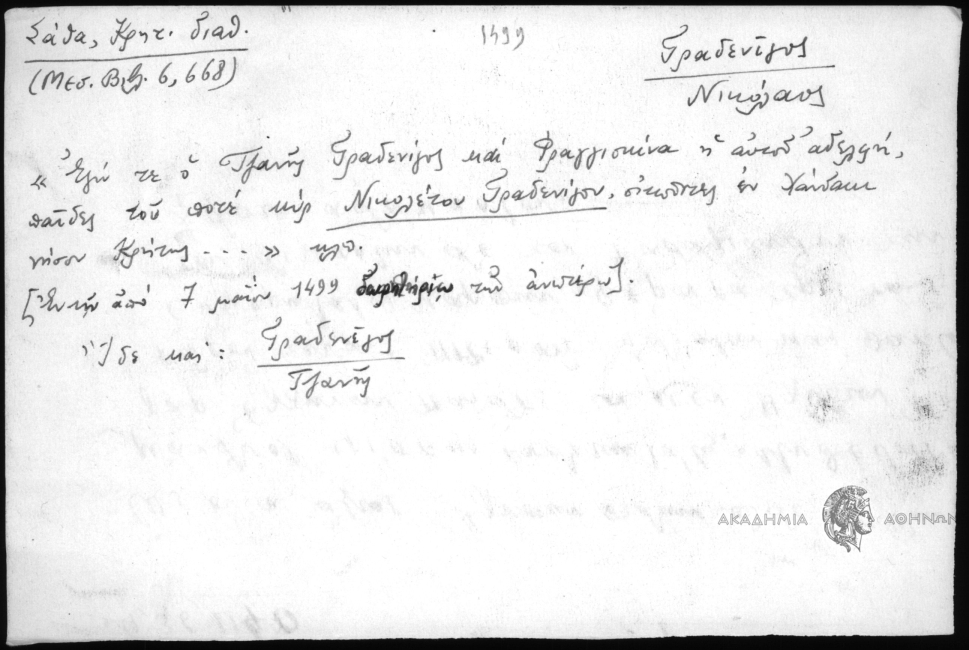 Σάθα, Κρητ. διαθ.
(Μεσ. Βιβ. 6, 668)
1499
Γραδενῖγος
Νικόλαος
« Ἐγώ τε ὁ Τζανῆς Γραδενῖγος καὶ Φραγγισκίνα ἡ αὐτοῦ ἀδελφή,
παῖδες τοῦ ποτέ κὺρ Νικολέτου Γραδενίγου, οἰκοῦντες ἐν Χάνδακι
νήσου Κρήτης .... » κλπ.
[Ἐκ τῆς ἀπό 7 μαΐου 1499 τῶν ἀνωτέρω]
Ἴδε καί: Γραδενῖγος
Τζανῆς
ΑΚΑΔΗΜΙΑ ΑΘΗΝΩΝ